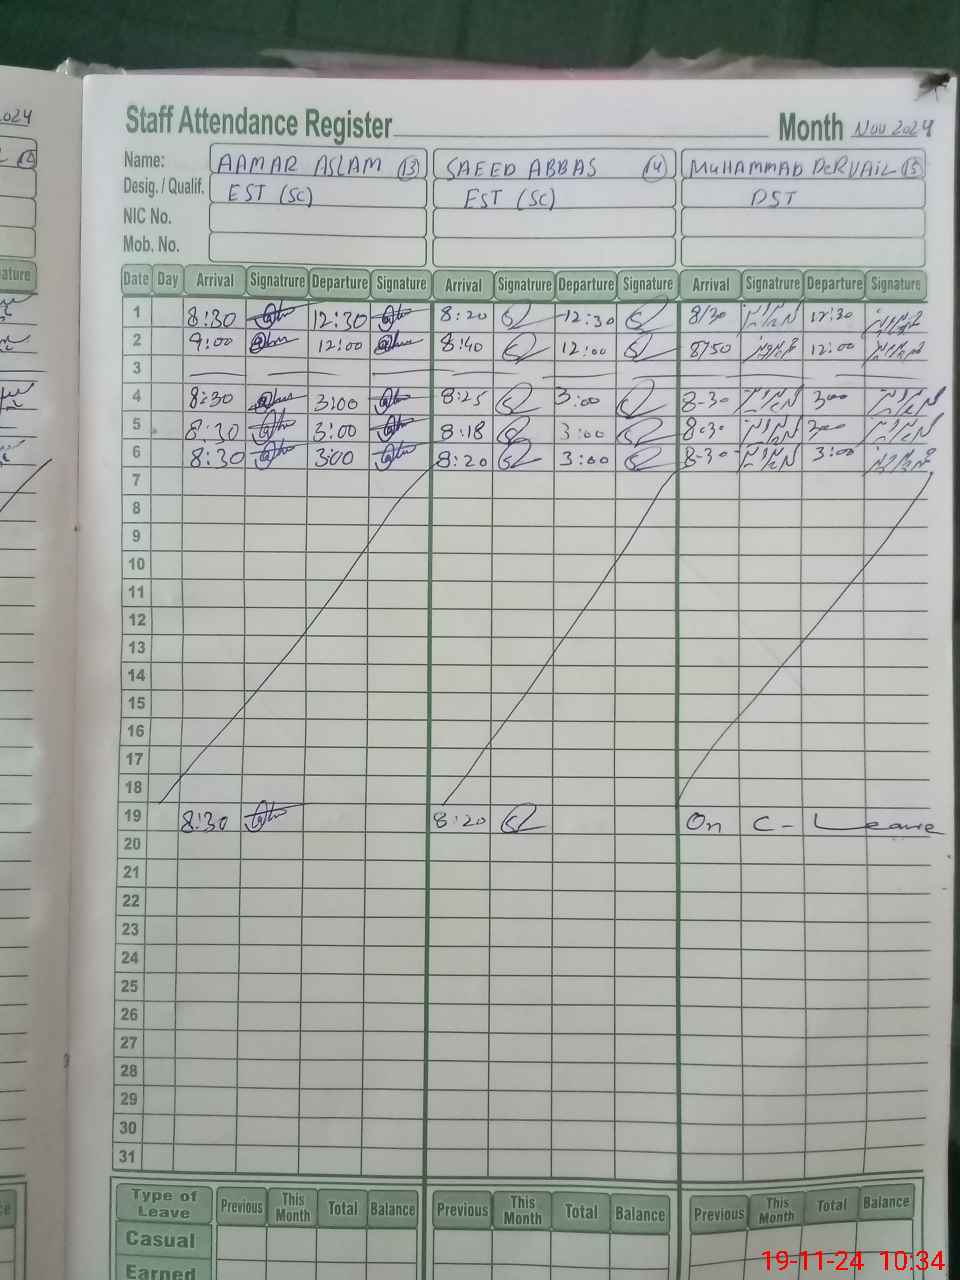 2024
Staff Attendance Register Month Nov 2024
Name: AAMAR ASLAM 13 SAEED ABBAS 14 MUHAMMAD DERVAIL 15
Desig. / Qualif. EST (SC) EST (SC) DST
NIC No.
Mob. No.
ature Date Day Arrival Signatrure Departure Signature Arrival Signatrure Departure Signature Arrival Signatrure Departure Signature
1 8:30 12:30 8:20 12:30 8/30 12:30
2 9:00 12:00 8:40 12:00 8/50 12:00
3
4 8:30 3:00 8:25 3:00 8-30 300
5 8:30 3:00 8:18 3:00 8:30 300
6 8:30 3:00 8:20 3:00 8-30 3:00
7
8
9
10
11
12
13
14
15
16
17
18
19 8:30 8:20 On C- Leave
20
21
22
23
24
25
26
27
28
29
30
31
Type of Leave Previous This Month Total Balance Previous This Month Total Balance Previous This Month Total Balance
Casual
Earned
19-11-24 10:34